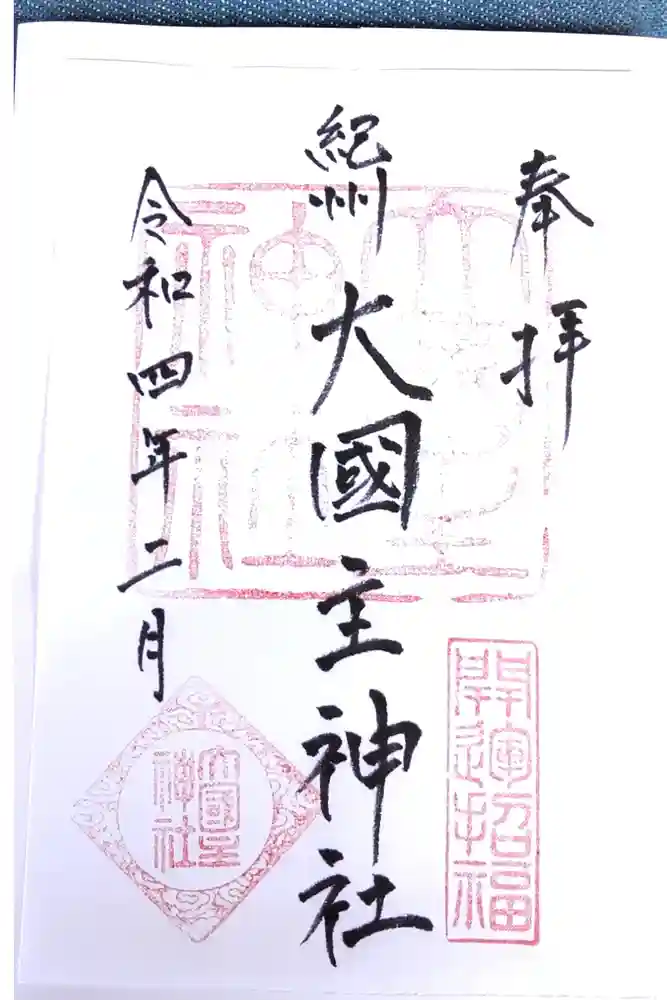 奉拝
紀州
大國主神社
令和四年二月
大國主
神社
開運招福